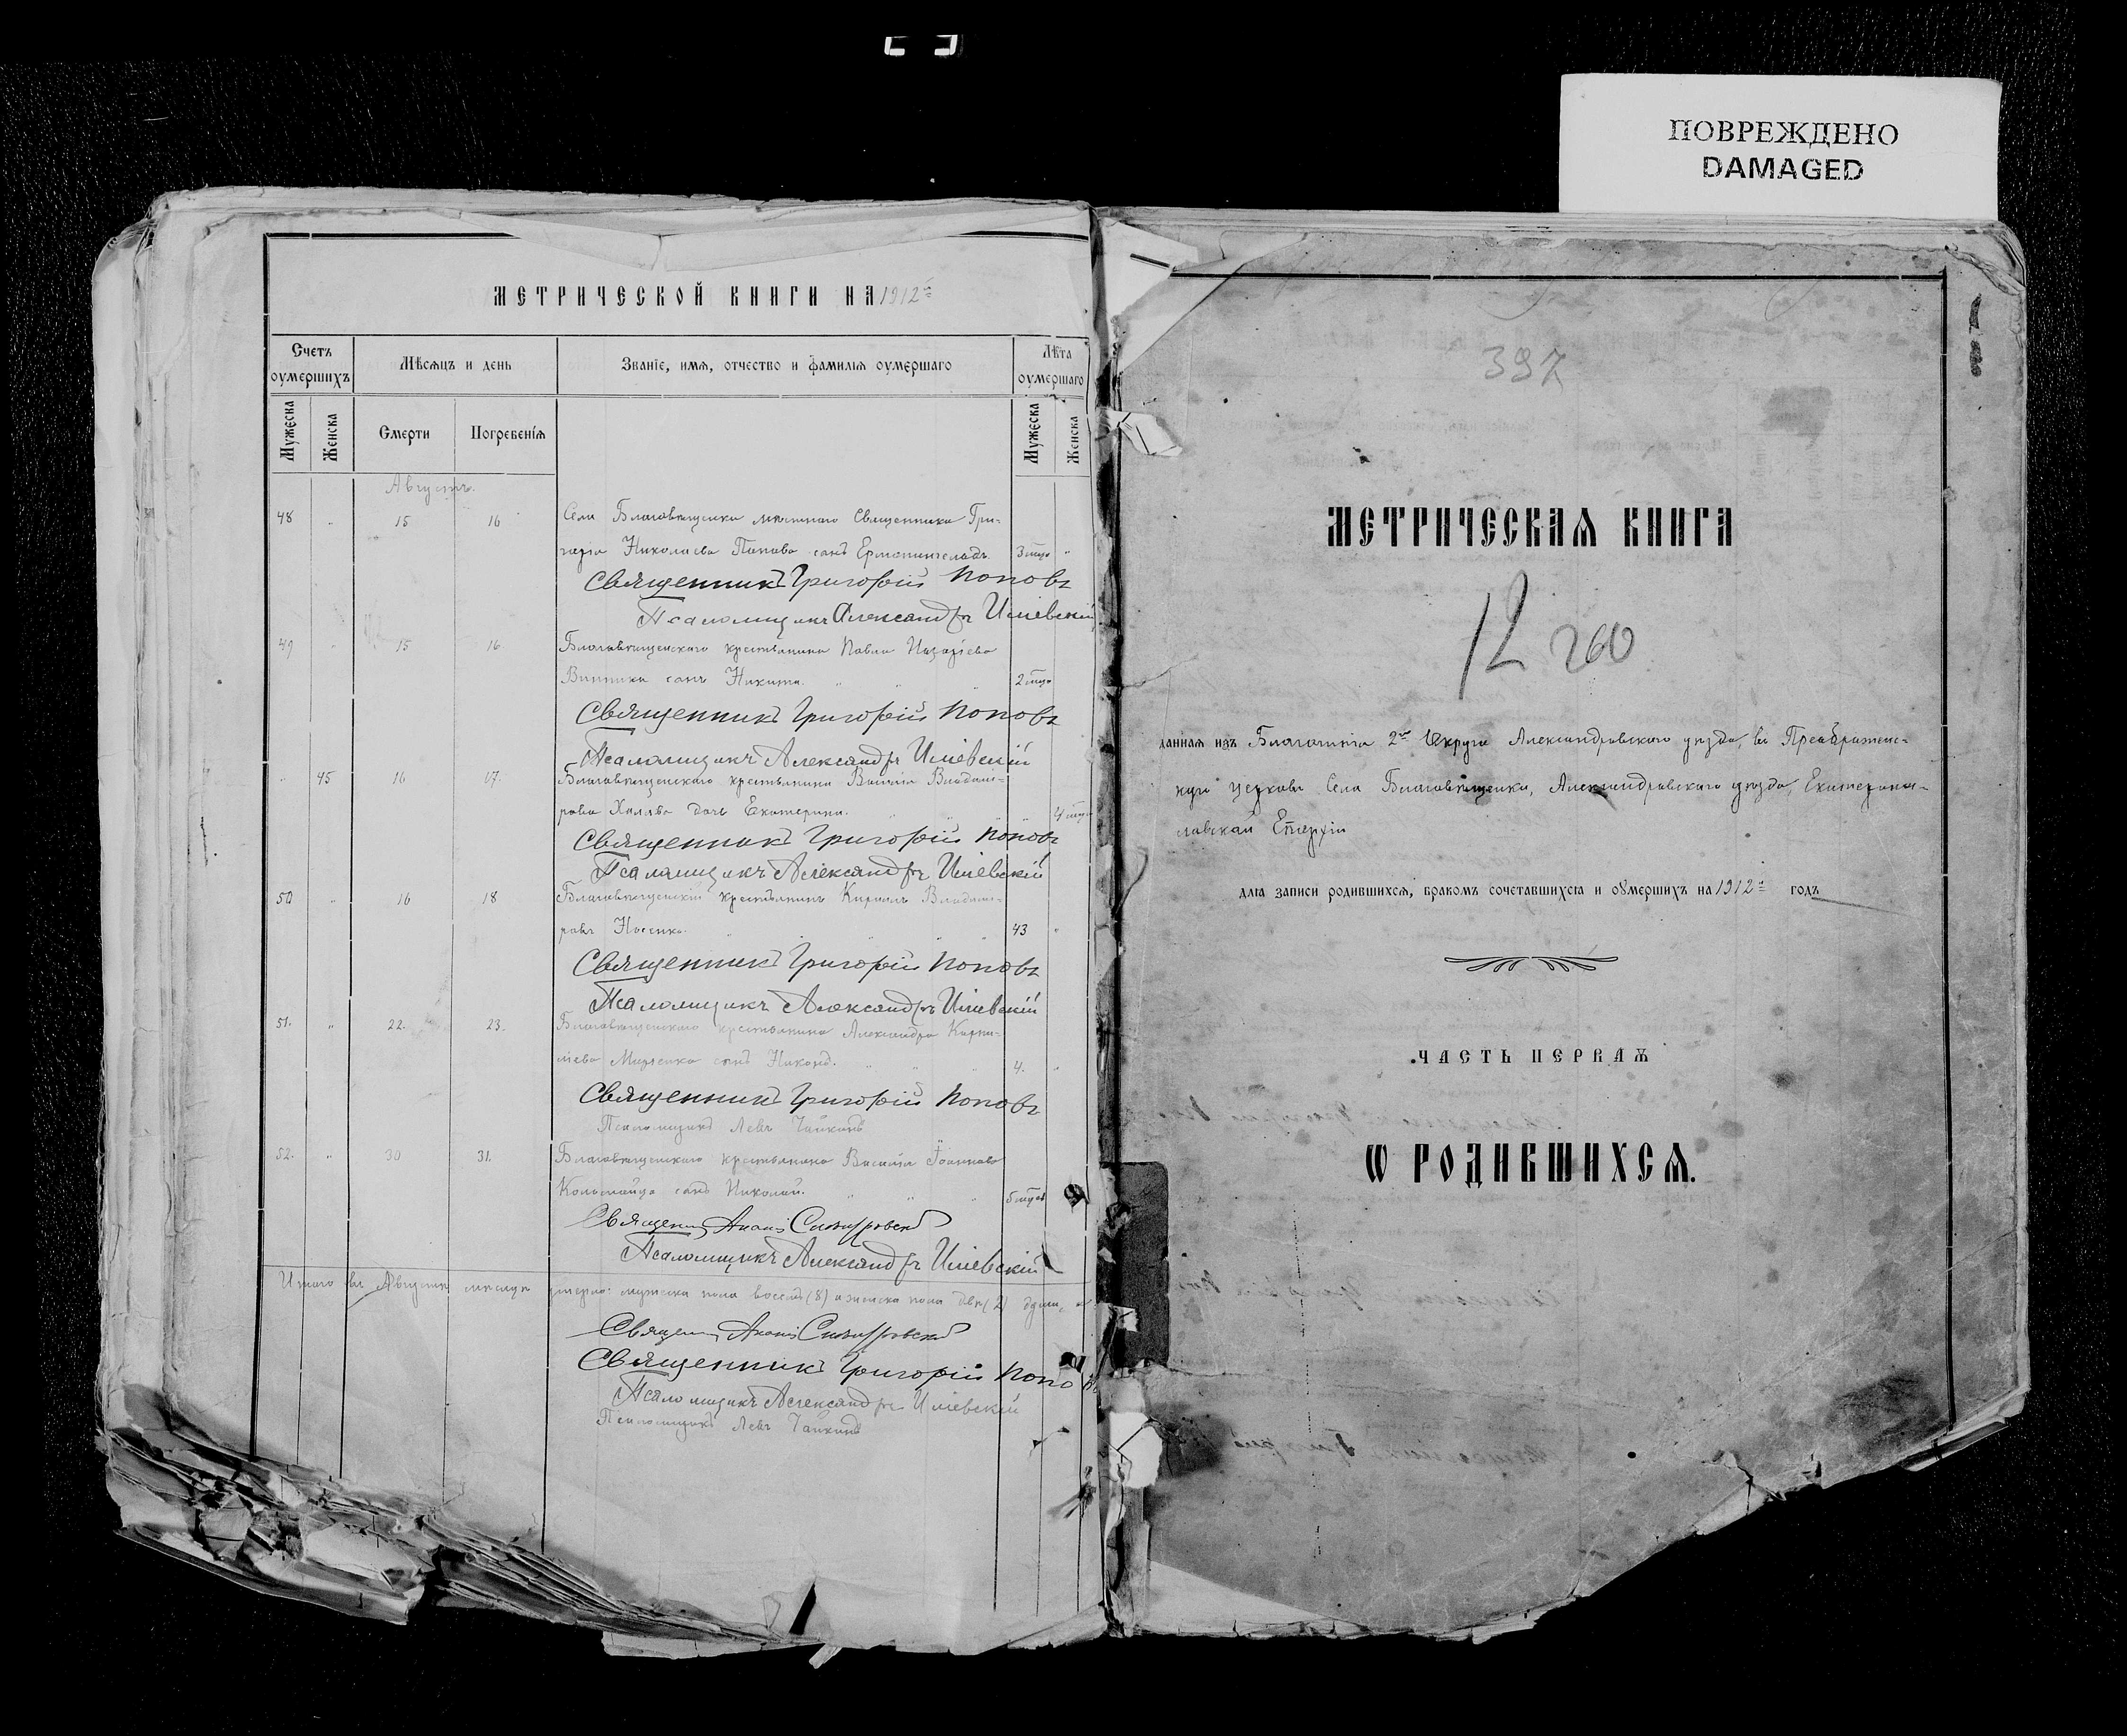 ПОВРЕЖДЕНО
DAMAGED
МЕТРИЧЕСКОЙ КНИГИ НА 1912 г
Счетъ оумершихъ
Мѣсяцъ и день
Званіе, имя, отчество и фамилія оумершаго
Лѣта оумершаго
Мужеска
Женска
Смерти
Погребенія
Мужеска
Женска
Августъ.
48 " 15 16 Села Благовѣщенки мѣстнаго Священника Гри-
горія Николаева Попова сынъ 3 "
Священникъ Григорій Поповъ
Псаломщикъ Александръ
49 " 15 16 Благовѣщенскаго крестьянина Павла Назаріева
Винника сынъ Никита. " " 2
Священникъ Григорій Поповъ
Псаломщикъ Александръ
" 45 16 17. Благовѣщенскаго крестьянина Василія Владимі-
рова дочь Екатерина. " " 4
Священникъ Григорій Поповъ
Псаломщикъ Александръ
50 " 16 18 Благовѣщенскій крестьянинъ Кириллъ Владимі-
ровъ Носенко. " " " " 43 "
Священникъ Григорій Поповъ
Псаломщикъ Александръ
51. " 22. 23. Благовѣщенскаго крестьянина Александра Корни-
ліева сынъ " " " 4. "
Священникъ Григорій Поповъ
Псаломщикъ Левъ
52. " 30 31. Благовѣщенскаго крестьянина Василія Іоаннова
сынъ Николай. " " " 5
Священ
Псаломщикъ Александръ
Итого въ Августѣ мѣсяцѣ умерло: мужска пола восемь (8) а женска пола двѣ (2) души
Священ
Священникъ Григорій Попо
Псаломщикъ Александръ
Псаломщикъ Левъ
397
МЕТРИЧЕСКАЯ КНИГА
12 260
данная изъ Благочинія 2го Округа Александровскаго уѣзда, въ Преображенс-
кую церковь Села Благовѣщенки, Александровскаго уѣзда, Екатерино-
славской Епархіи
для записи родившихся, бракомъ сочетавшихся и оумершихъ на 1912 г годъ
ЧАСТЬ ПЕРВАЯ
Ѡ РОДИВШИХСЯ.